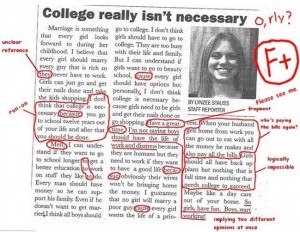 College really isn't necessary
O, rly?
F+
Please see me.
unclear
reference
run-on
Marriage is something
that every girl looks
forward to during her
childhood. I believe that
every girl should marry
every guy that is rich and
they never have to work.
Girls can just go and get
their nails done and take
the kids shopping. I
think that college is
necessary because you go
to school twelve years out
of your life and after that
you should be done.
Men, I can understand
if they want to go
to school longer
education
on stuff they like to do.
Every man should have
money so he can support
his family. Even if he
doesn't want to get married,
I think all boys should
go to college. I don't think
girls should have to go to
college. They are too busy
with their life and family.
But I can understand if
girls want to go to beauty
school, cause every girl
should have options but
personally, I don't think
college is necessary because
girls need to be girls
and get their nails done or
go shopping.
I'm not saying boys
should have the life of
work and distress because
they are humans but they
need to work if they want
to have a good life because
obviously their wives
won't be bringing home
the money. I guarantee
that no girl will marry a
poor guy every girl
wants the life of a
BY LINZEE STAUSS
STAFF REPORTER
When your husband
gets home from work you
can go out to eat with all
the money he makes and
also pay all the bills. Girls
should all have back up
plans but nothing that is
full time and nothing that
needs college to succeed.
Maybe like a day care
out of your home. So
girls, have fun. Boys, start
working!
who's paying
the bills again?
logically
impossible
implying two different
opinions at once